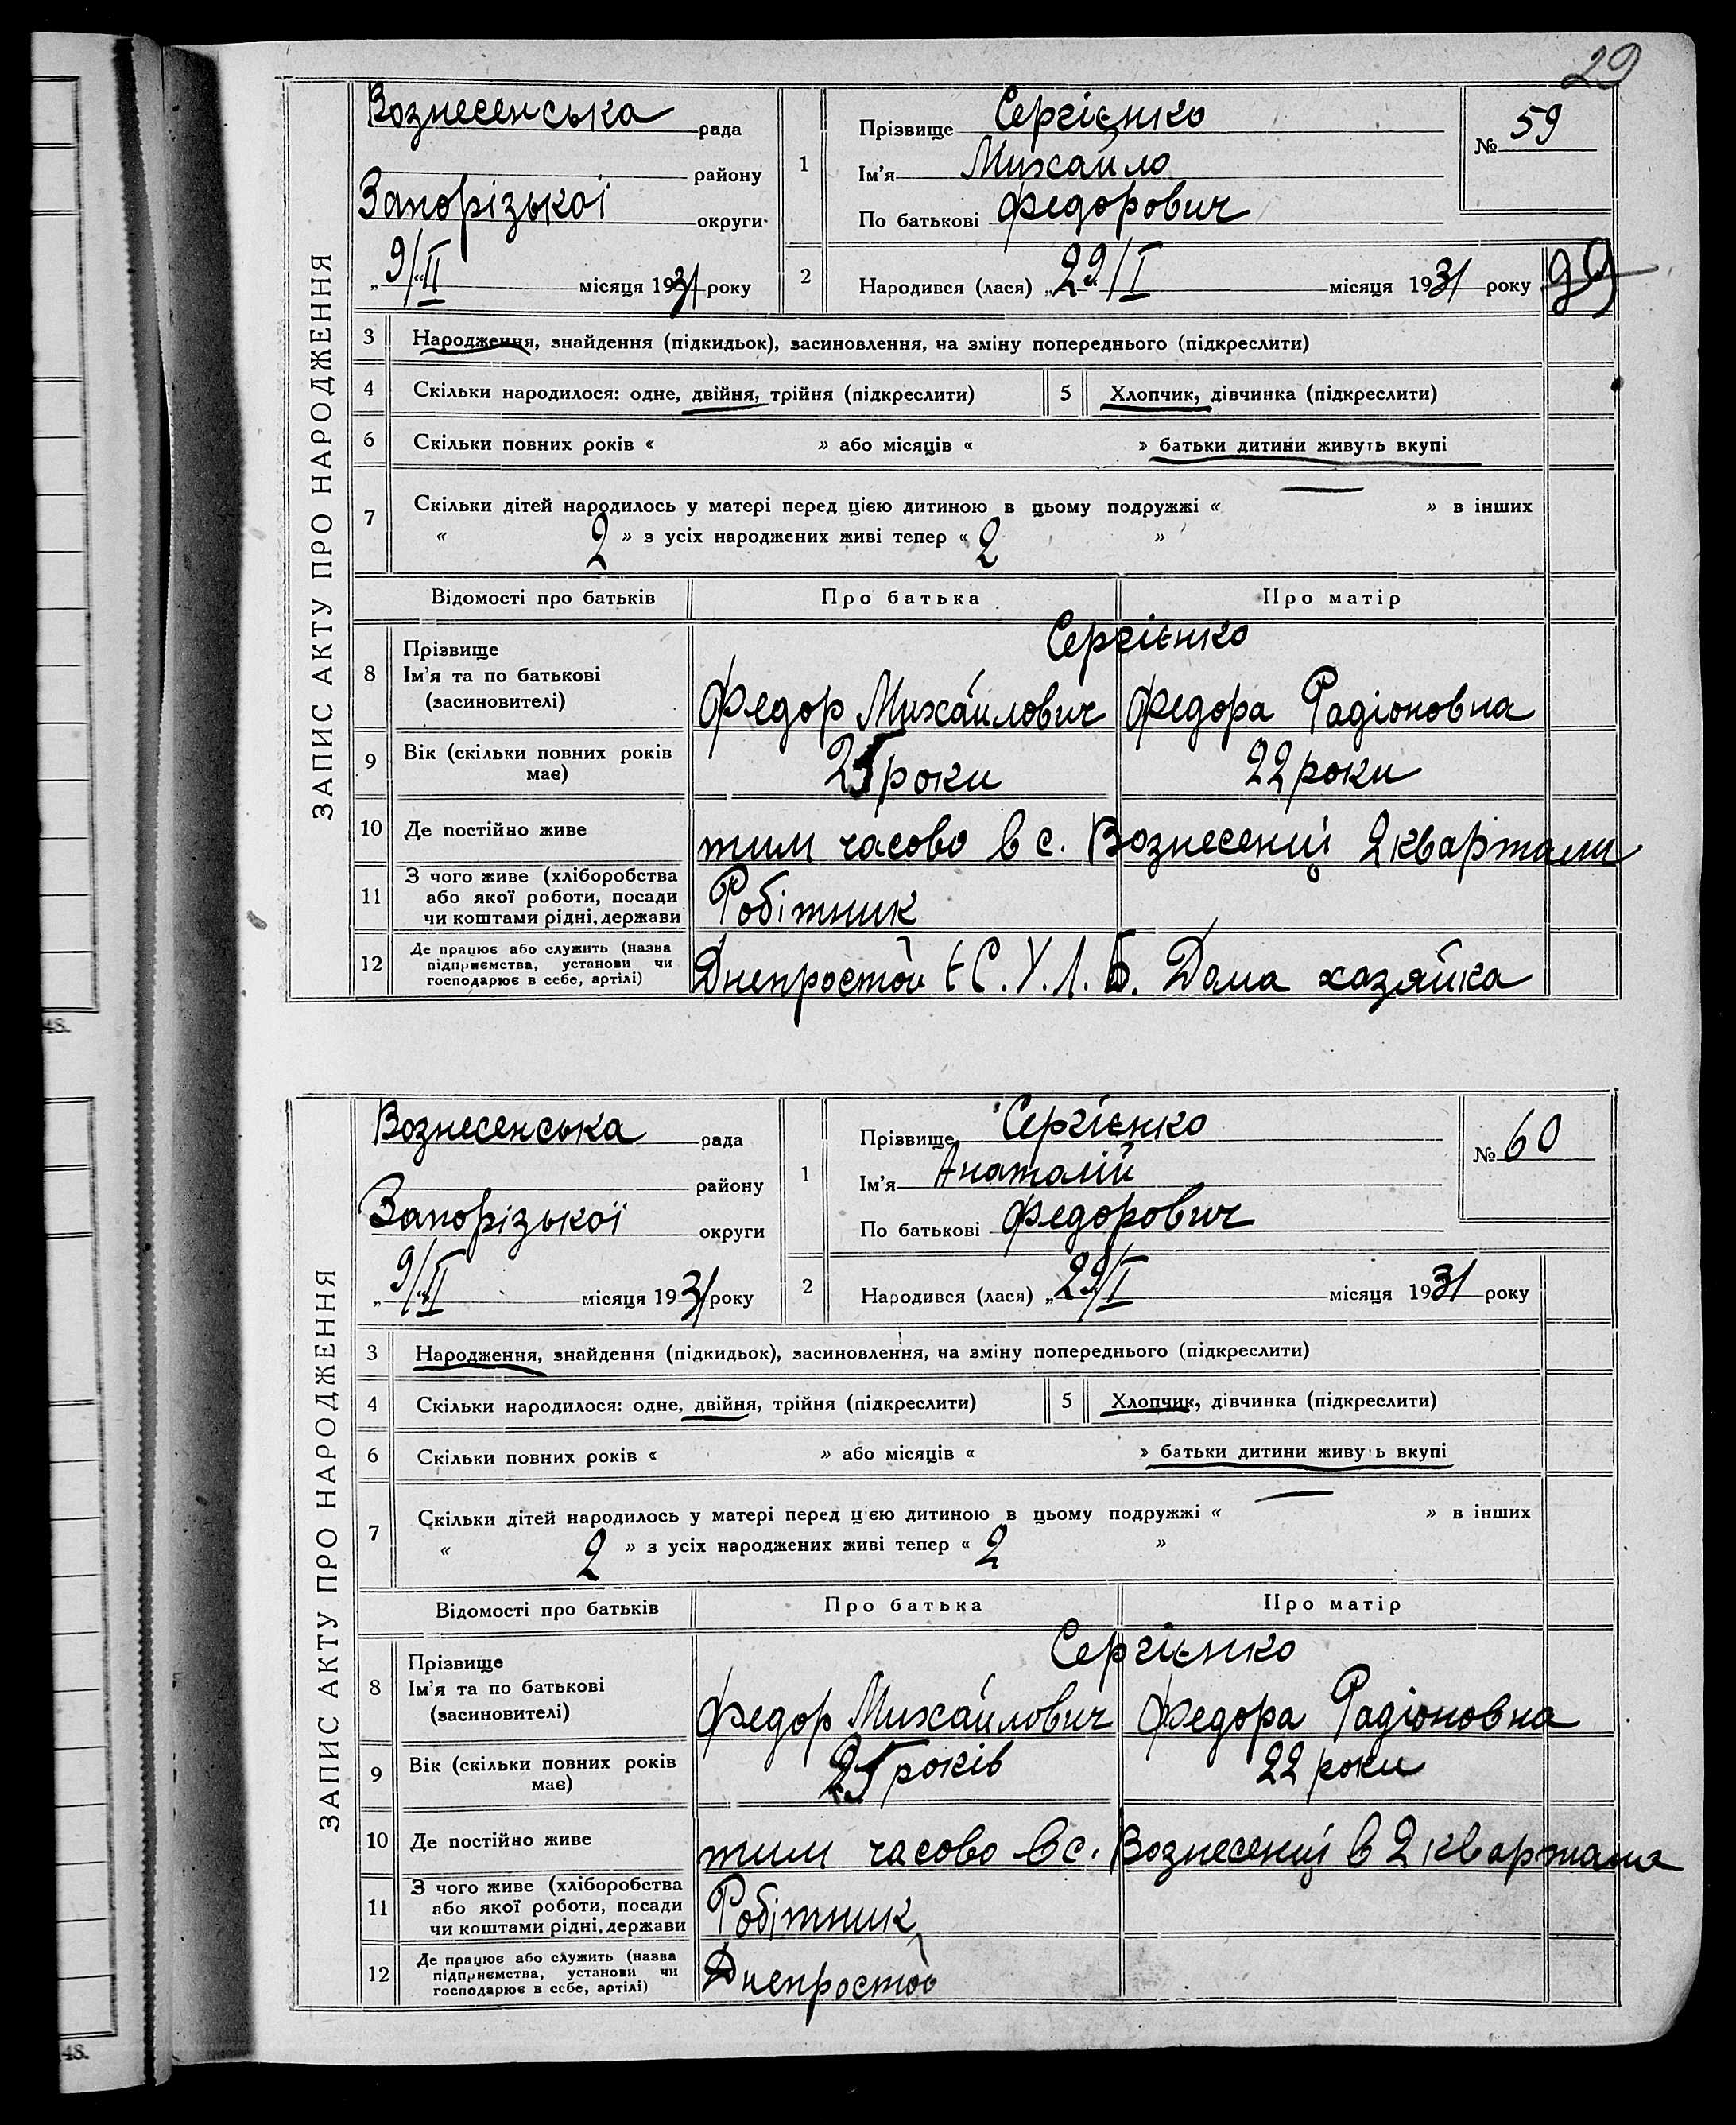 29
ЗАПИС АКТУ ПРО НАРОДЖЕННЯ
Вознесенська рада
району
Запорізької округи
„ 9/„II місяця 1931 року
1 Прізвище Сергієнко
Ім'я Михайло
По батькові Федорович
№ 59
2 Народився (лася) „22/I місяця 1931 року
29
3 Народження, знайдення (підкидьок), засиновлення, на зміну попереднього (підкреслити)
4 Скільки народилося: одне, двійня, трійня (підкреслити) 5 Хлопчик, дівчинка (підкреслити)
6 Скільки повних років « » або місяців « » батьки дитини живуть вкупі
7 Скільки дітей народилось у матері перед цією дитиною в цьому подружжі « — » в інших
« 2 » з усіх народжених живі тепер « 2 »
Відомості про батьків Про батька Про матір
8 Прізвище
Ім'я та по батькові
(засновителі)
Сергієнко
Федор Михайлович Федора Радіоновна
9 Вік (скільки повних років
має)
25 роки 22 роки
10 Де постійно живе тим часово в с. Вознесенці 2 квартали
11 З чого живе (хліборобства
або якої роботи, посади
чи коштами рідні, держави
Робітник
12 Де працює або служить (назва
підприємства, установи чи
господарює в себе, артілі)
Днепрострой С.У.Л.Б. Дома хазяйка
48.
ЗАПИС АКТУ ПРО НАРОДЖЕННЯ
Вознесенська рада
району
Запорізької округи
„ 9/„II місяця 1931 року
1 Прізвище Сергієнко
Ім'я Анаталій
По батькові Федорович
№ 60
2 Народився (лася) „22/I місяця 1931 року
3 Народження, знайдення (підкидьок), засиновлення, на зміну попереднього (підкреслити)
4 Скільки народилося: одне, двійня, трійня (підкреслити) 5 Хлопчик, дівчинка (підкреслити)
6 Скільки повних років « » або місяців « » батьки дитини живуть вкупі
7 Скільки дітей народилось у матері перед цією дитиною в цьому подружжі « — » в інших
« 2 » з усіх народжених живі тепер « 2 »
Відомості про батьків Про батька Про матір
8 Прізвище
Ім'я та по батькові
(засиновителі)
Сергієнко
Федор Михайлович Федора Радіоновна
9 Вік (скільки повних років
має)
25 років 22 роки
10 Де постійно живе тим часово в с. Вознесенці в 2 квартала
11 З чого живе (хліборобства
або якої роботи, посади
чи коштами рідні, держави
Робітник
12 Де працює або служить (назва
підприємства, установи чи
господарює в себе, артілі)
Днепрострой
48.